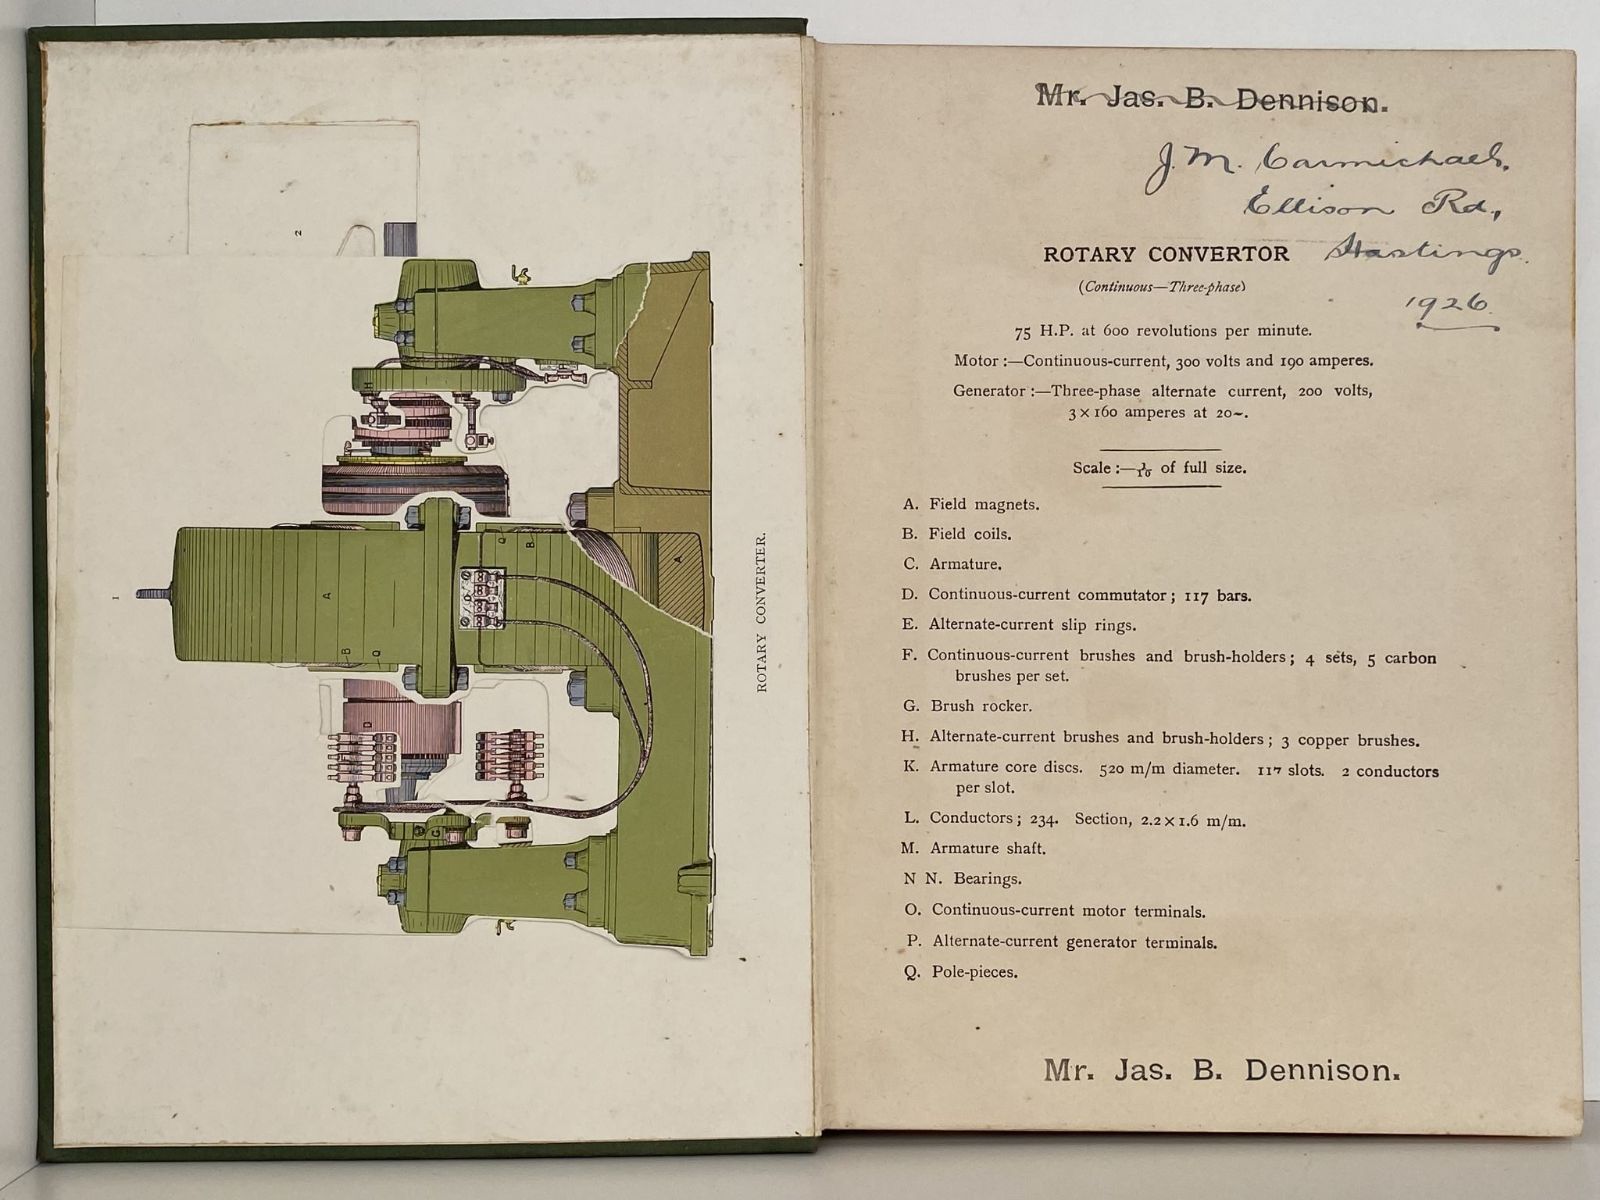 2
H
Q
B
A
I
A
B
Q
D
G
ROTARY CONVERTER.
Mr. Jas. B. Dennison.
J. M. Carmichael.
Ellison Rd,
Hastings.
1926.
ROTARY CONVERTOR
(Continuous—Three-phase)
75 H.P. at 600 revolutions per minute.
Motor :—Continuous-current, 300 volts and 190 amperes.
Generator :—Three-phase alternate current, 200 volts,
3 × 160 amperes at 20~.
Scale :—1/10 of full size.
A. Field magnets.
B. Field coils.
C. Armature.
D. Continuous-current commutator ; 117 bars.
E. Alternate-current slip rings.
F. Continuous-current brushes and brush-holders ; 4 sets, 5 carbon
brushes per set.
G. Brush rocker.
H. Alternate-current brushes and brush-holders ; 3 copper brushes.
K. Armature core discs. 520 m/m diameter. 117 slots. 2 conductors
per slot.
L. Conductors ; 234. Section, 2.2 × 1.6 m/m.
M. Armature shaft.
N N. Bearings.
O. Continuous-current motor terminals.
P. Alternate-current generator terminals.
Q. Pole-pieces.
Mr. Jas. B. Dennison.